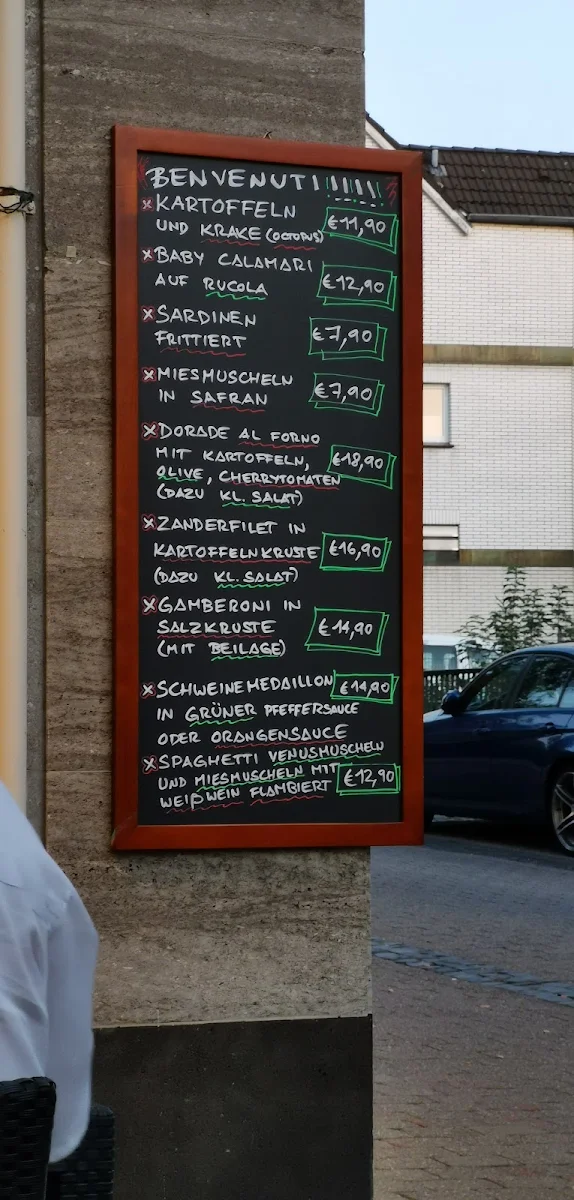 BENVENUTI!!!!!
x KARTOFFELN
UND KRAKE (OCTOPUS) €11,90
x BABY CALAMARI
AUF RUCOLA €12,90
x SARDINEN
FRITTIERT €7,90
x MIESMUSCHELN
IN SAFRAN €7,90
x DORADE AL FORNO
MIT KARTOFFELN, €18,90
OLIVE, CHERRYTOMATEN
(DAZU KL. SALAT)
x ZANDERFILET IN
KARTOFFELNKRUSTE €16,90
(DAZU KL. SALAT)
x GAMBERONI IN
SALZKRUSTE €14,90
(MIT BEILAGE)
x SCHWEINEMEDAILLON €14,90
IN GRÜNER PFEFFERSAUCE
ODER ORANGENSAUCE
x SPAGHETTI VENUSMUSCHELN
UND MIESMUSCHELN MIT €12,90
WEIßWEIN FLAMBIERT